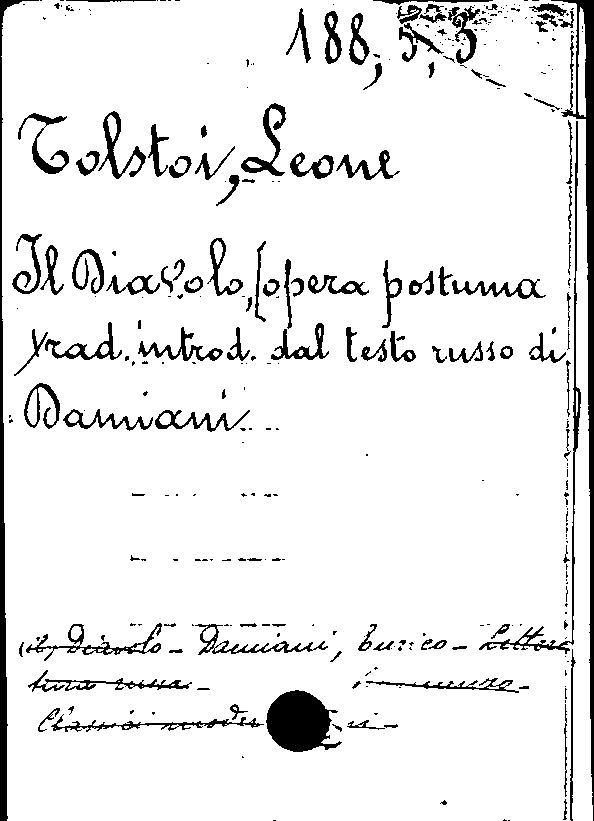 188, 5, 3
Tolstoi, Leone
Il Diavolo, [opera postuma
trad. introd. dal testo russo di
Damiani
(il) Diavolo - Damiani, Enrico - Lettera
tura russa -
Classici moder